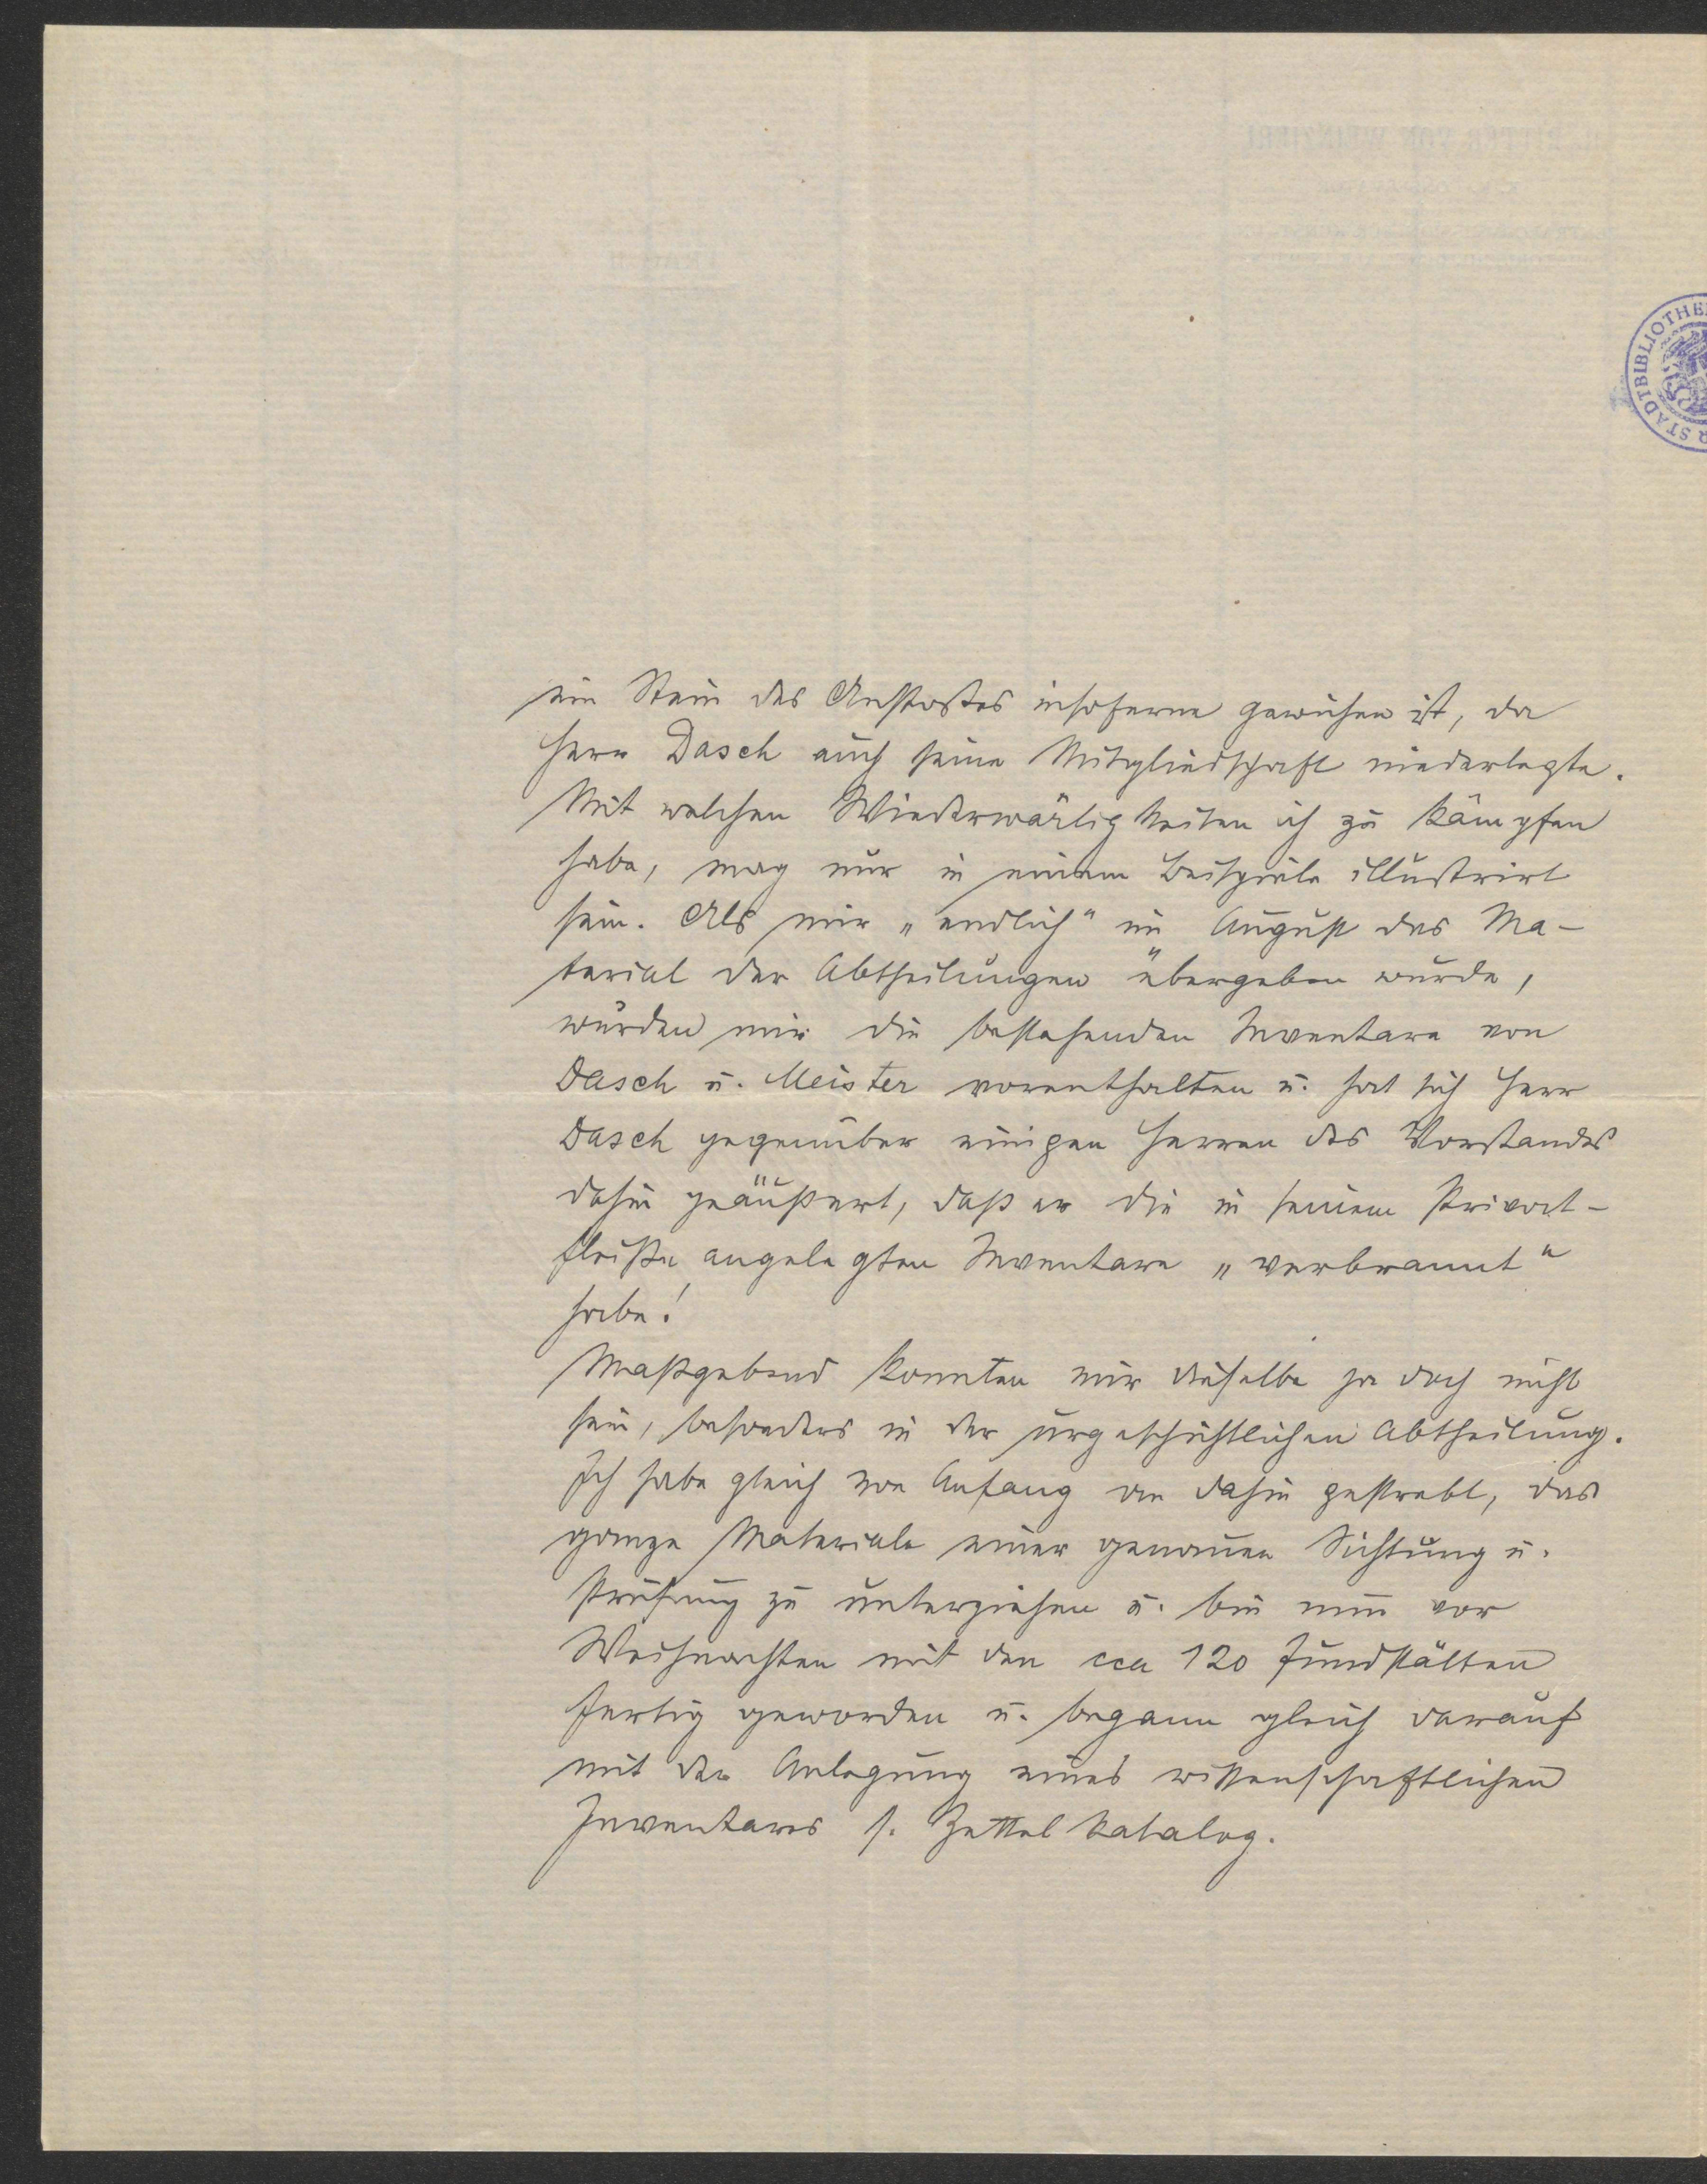 ein Stein des Anstosses insoferne gewichen ist, da
Herr Dasch auch seine Mitgliedschaft niederlegte.
Mit welchen Wiederwärtigkeiten ich zu kämpfen
habe, mag nur in einem Beispiele illustrirt
sein. Als mir „endlich“ im August das Ma-
terial der Abtheilungen übergeben wurde,
wurden mir die bestehenden Inventare von
Dasch u. Meister vorenthalten u. hat sich Herr
Dasch gegenüber einigen Herren des Vorstandes
dahin geäußert, daß er die in seinem Privat-
fleiße angelegten Inventare „verbrannt“
habe!
Maßgebend konnten mir dieselbe ja doch nicht
sein, besonders in der urgeschichtlichen Abtheilung.
Ich habe gleich von Anfang an dahin gestrebt, das
ganze Materiale einer genauen Sichtung u.
Prüfung zu unterziehen u. bin nun vor
Weihnachten mit den cca 120 Fundstätten
fertig geworden u. begann gleich darauf
mit der Anlegung eines wissenschaftlichen
Inventares s. Zettelkatalog.
STADTBIBLIOTHE